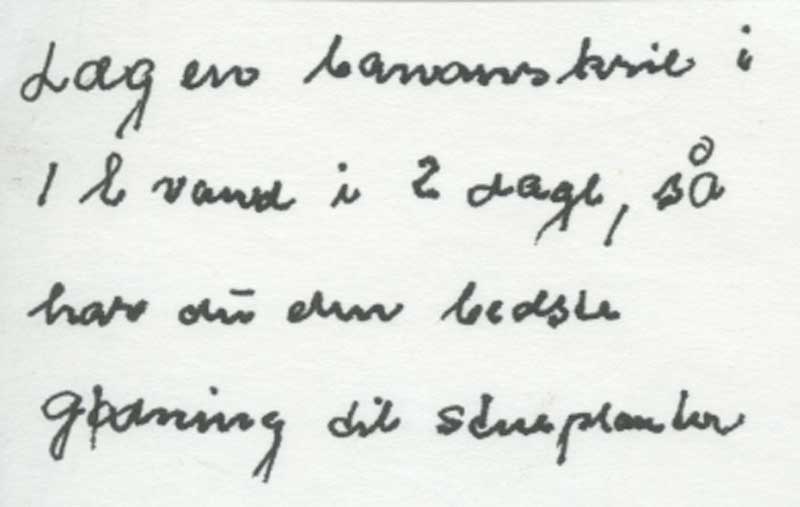 Læg en bananskræl i
1 l vand i 2 dage, så
har du den bedste
gødning til stueplanter